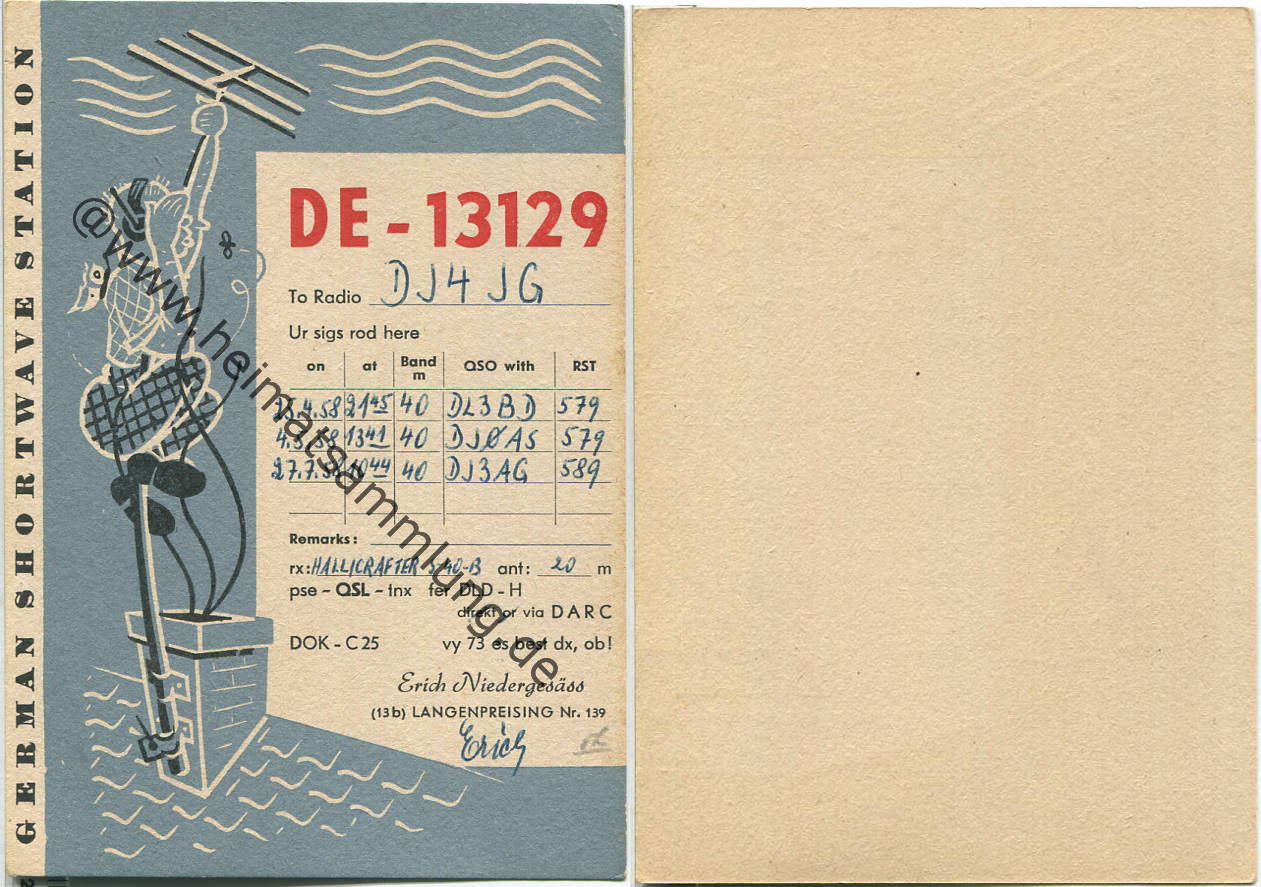 GERMAN SHORTWAVE STATION
DE - 13129
To Radio DJ4JG
Ur sigs rod here
on at Band m QSO with RST
4.58 21 45 40 DL3BD 579
4. 58 13 41 40 DJØAS 579
27.7. 44 40 DJ3AG 589
Remarks:
rx: HALLICRAFTER S-40-B ant: 20 m
pse - QSL - tnx fer DLD - H
direkt or via DARC
DOK - C 25 vy 73 es best dx, ob!
Erich Niedergesäss
(13b) LANGENPREISING Nr. 139
Erich
@www.heimatsammlung.de